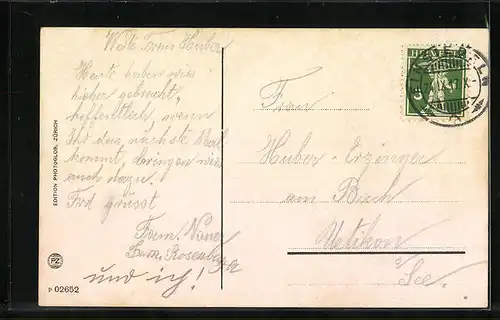 Werte Frau Huber
Heute haben wir's
hieher gebracht,
hoffentlich, wenn
Ihr das nächste Mal
kommt, bringen wir's
auch dazu.
Frdl grüsst
Fam.
Fam. Rosenberger
und ich!
Frau
Huber-Erzinger
am Bach
Uetikon
a/See.
HELVETIA
EDITION PHOTOGLOB, ZÜRICH
PZ
P 02652